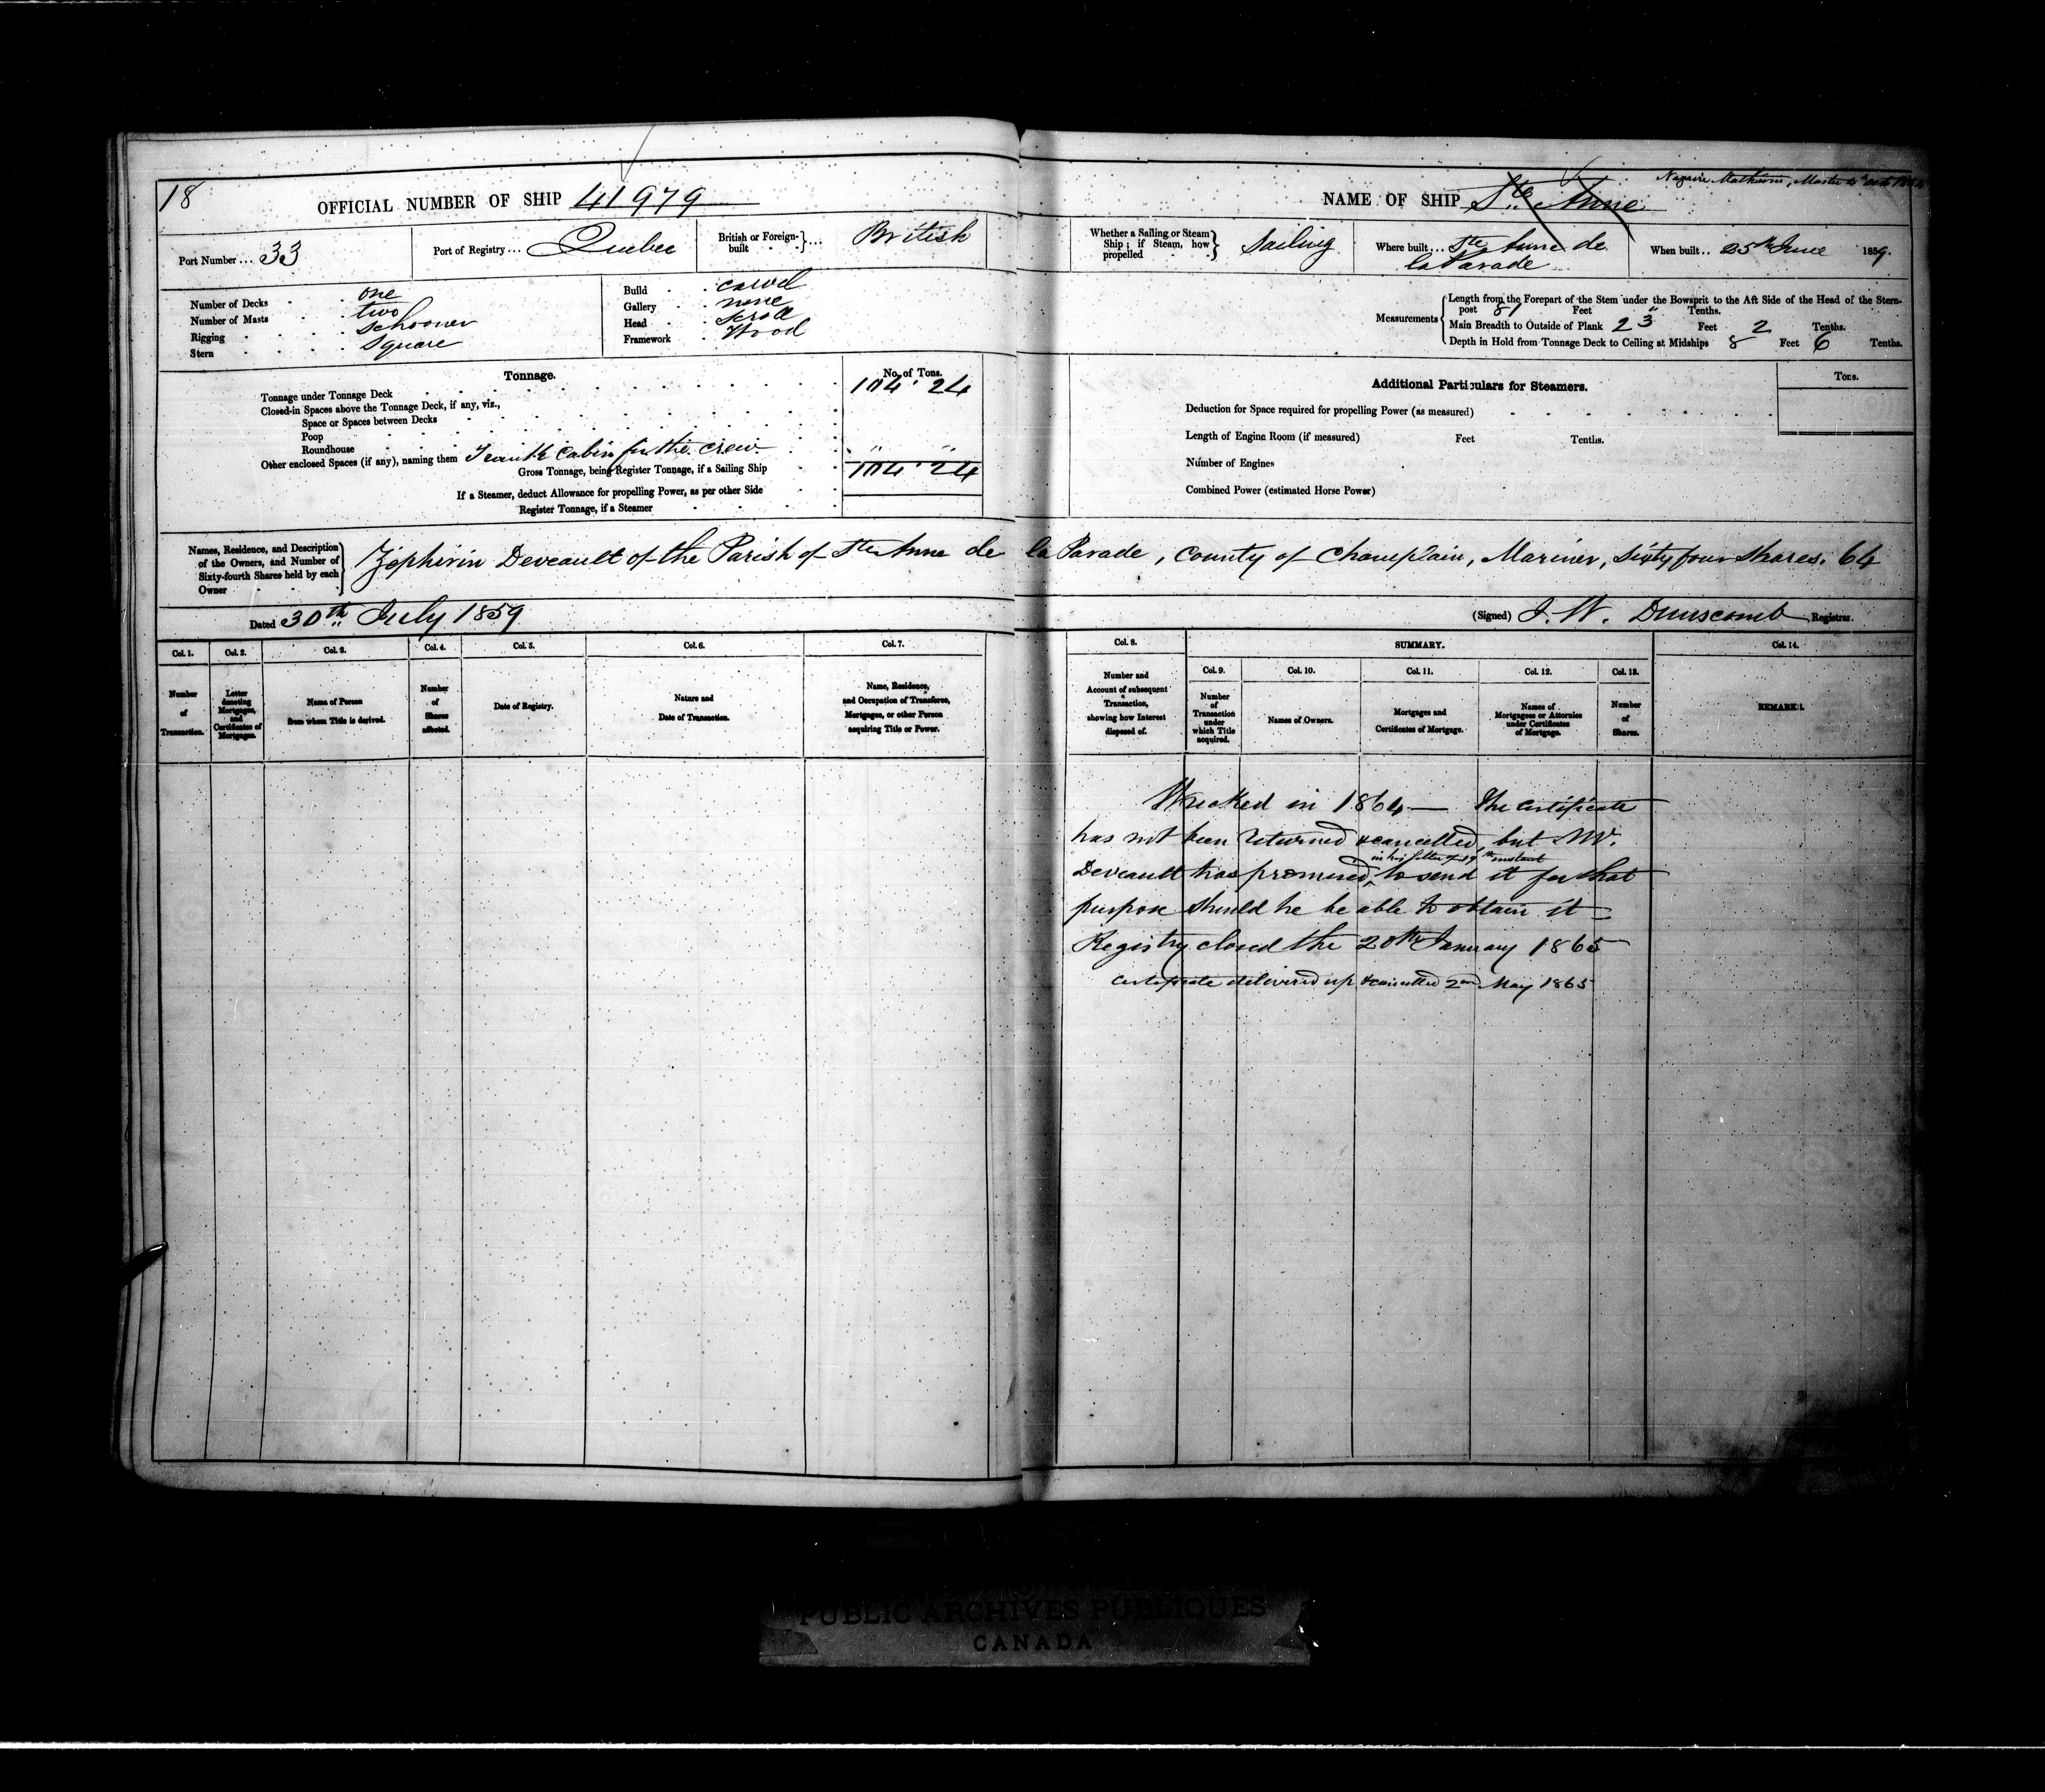 18
OFFICIAL NUMBER OF SHIP 41979
Port Number ... 33
Port of Registry ... Quebec
British or Foreign-built ... British
Number of Decks one
Number of Masts two
Rigging schooner
Stern square
Build carvel
Gallery none
Head scroll
Framework Wood
Tonnage.
No. of Tons.
Tonnage under Tonnage Deck 104 . 24
Closed-in Spaces above the Tonnage Deck, if any, viz.,
Space or Spaces between Decks
Poop
Roundhouse
Other enclosed Spaces (if any), naming them cabin for the crew " "
Gross Tonnage, being Register Tonnage, if a Sailing Ship 104 . 24
If a Steamer, deduct Allowance for propelling Power, as per other Side
Register Tonnage, if a Steamer
NAME OF SHIP Ste Anne
Master
Whether a Sailing or Steam Ship; if Steam, how propelled Sailing
Where built ... Ste Anne de
la Parade
When built .. 25th June 1859.
Measurements
Length from the Forepart of the Stem under the Bowsprit to the Aft Side of the Head of the Stern-
post 81 Feet " Tenths.
Main Breadth to Outside of Plank 23 Feet 2 Tenths.
Depth in Hold from Tonnage Deck to Ceiling at Midships 8 Feet 6 Tenths.
Additional Particulars for Steamers.
Tons.
Deduction for Space required for propelling Power (as measured)
Length of Engine Room (if measured) Feet Tenths.
Number of Engines
Combined Power (estimated Horse Power)
Names, Residence, and Description
of the Owners, and Number of
Sixty-fourth Shares held by each
Owner
Zephirin Deveault of the Parish of Ste Anne de la Parade, County of Champlain, Mariner, sixty four shares. 64
Dated 30th July 1859
(Signed) J. W. Dunscomb Registrar.
Col. 1. Col. 2. Col. 3. Col. 4. Col. 5. Col. 6. Col. 7.
Number of Transaction.
Letter denoting Mortgages, and Certificates of Mortgages.
Name of Person from whom Title is derived.
Number of Shares affected.
Date of Registry.
Nature and Date of Transaction.
Name, Residence, and Occupation of Transferee, Mortgagee, or other Person acquiring Title or Power.
Col. 8.
Number and Account of subsequent Transaction, showing how Interest disposed of.
SUMMARY.
Col. 9. Col. 10. Col. 11. Col. 12. Col. 13.
Number of Transaction under which Title acquired.
Names of Owners.
Mortgages and Certificates of Mortgage.
Names of Mortgagees or Attornies under Certificates of Mortgage.
Number of Shares.
Col. 14.
REMARKS.
Wrecked in 1864 — The certificate
has not been returned & cancelled, but Mr.
in his letter of 19th instant
Deveault has promised to send it for that
purpose should he be able to obtain it —
Registry closed the 20th January 1865
Certificate delivered up & cancelled 2nd May 1865
PUBLIC ARCHIVES PUBLIQUES
CANADA